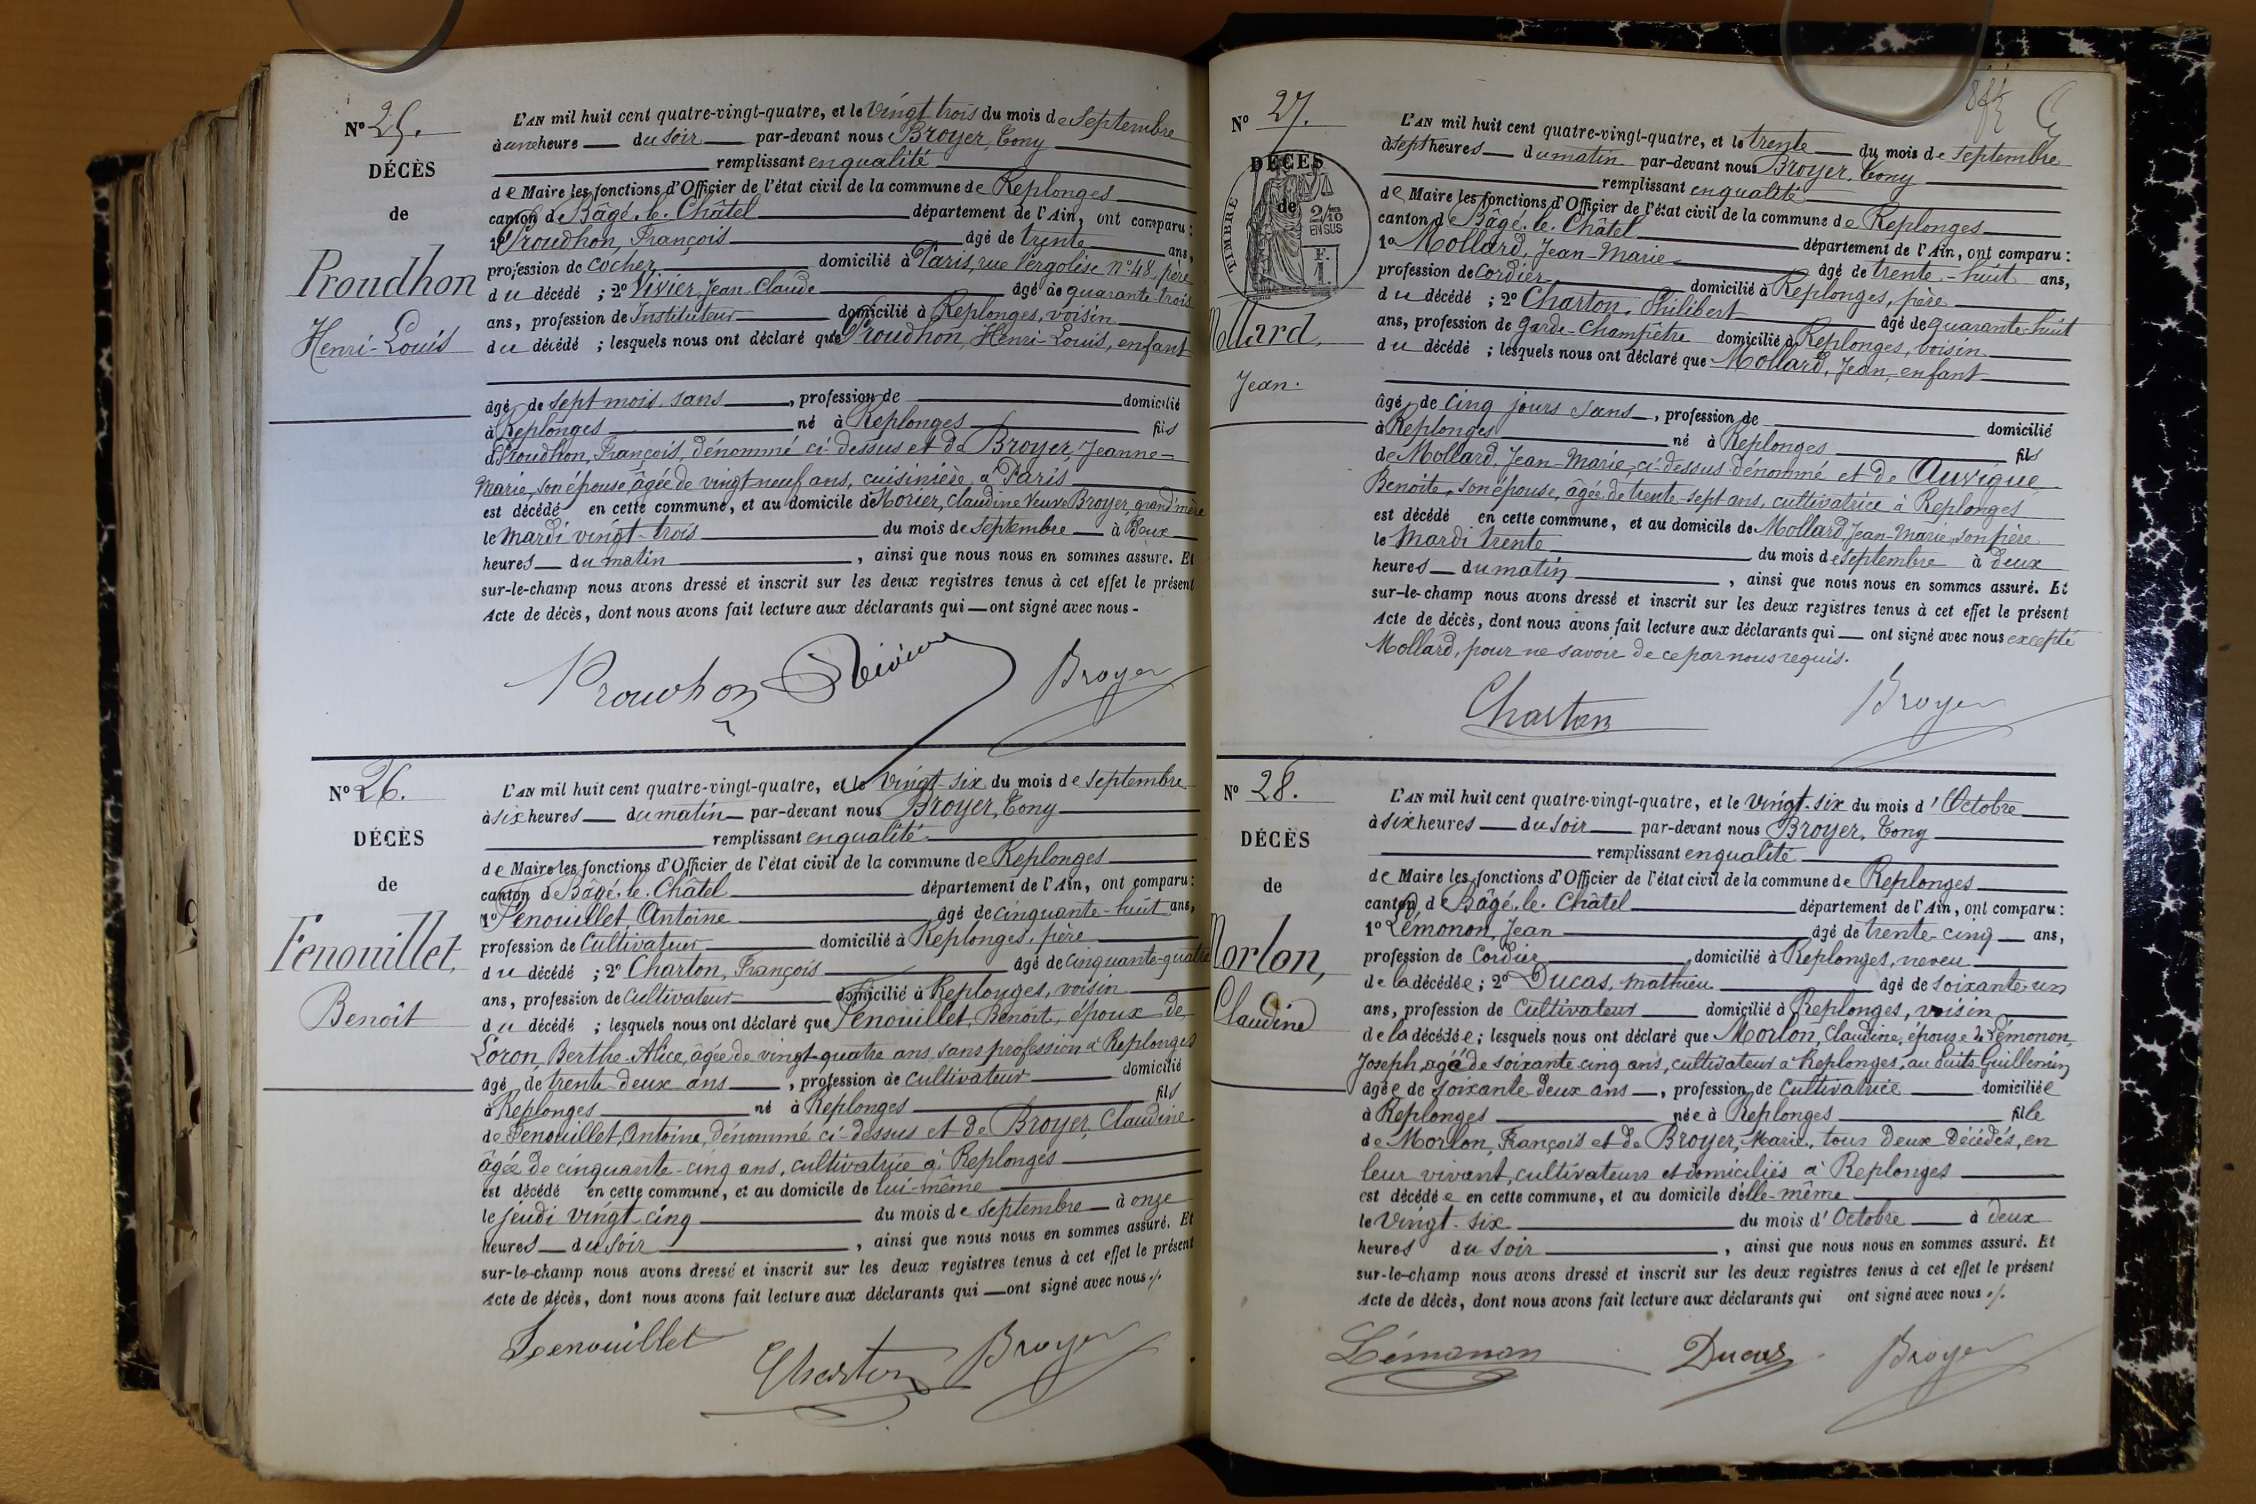 N° 25.
DÉCÈS
de
Proudhon
Henri-Louis
L'AN mil huit cent quatre-vingt-quatre, et le vingt trois du mois de Septembre
à une heure du soir par-devant nous Broyer, Tony
remplissant en qualité
de Maire les fonctions d'Officier de l'état civil de la commune de Replonges
canton de Bâgé-le-Châtel département de l'Ain, ont comparu :
1° Proudhon, François âgé de trente ans,
profession de cocher domicilié à Paris, rue Pergolèse N° 48, père
du décédé ; 2° Vivier, Jean-Claude âgé de quarante-trois
ans, profession de Instituteur domicilié à Replonges, voisin
du décédé ; lesquels nous ont déclaré que Proudhon, Henri-Louis, enfant
âgé de sept mois, sans , profession de domicilié
à Replonges né à Replonges fils
de Proudhon, François, dénommé ci-dessus et de Broyer, Jeanne-
Marie, son épouse, âgée de vingt neuf ans, cuisinière, à Paris
est décédé en cette commune, et au domicile de Morier, Claudine Veuve Broyer, grand'mère
le Mardi vingt-trois du mois de Septembre à Deux
heures du matin , ainsi que nous nous en sommes assuré. Et
sur-le-champ nous avons dressé et inscrit sur les deux registres tenus à cet effet le présent
Acte de décès, dont nous avons fait lecture aux déclarants qui ont signé avec nous -
Proudhon Vivier Broyer
N° 26.
DÉCÈS
de
Fenouillet,
Benoit
L'AN mil huit cent quatre-vingt-quatre, et le vingt-six du mois de Septembre
à six heures du matin par-devant nous Broyer, Tony
remplissant en qualité
de Maire les fonctions d'Officier de l'état civil de la commune de Replonges
canton de Bâgé-le-Châtel département de l'Ain, ont comparu :
1° Fenouillet, Antoine âgé de cinquante-huit ans,
profession de Cultivateur domicilié à Replonges, père
du décédé ; 2° Charton, François âgé de cinquante-quatre
ans, profession de Cultivateur domicilié à Replonges, voisin
du décédé ; lesquels nous ont déclaré que Fenouillet, Benoit, époux de
Loron, Berthe-Alice, âgée de vingt-quatre ans, sans profession à Replonges
âgé de trente-deux ans , profession de cultivateur domicilié
à Replonges né à Replonges fils
de Fenouillet, Antoine, dénommé ci-dessus et de Broyer, Claudine
âgée de cinquante-cinq ans, cultivatrice à Replonges
est décédé en cette commune, et au domicile de lui-même
le jeudi vingt cinq du mois de Septembre à onze
heures du soir , ainsi que nous nous en sommes assuré. Et
sur-le-champ nous avons dressé et inscrit sur les deux registres tenus à cet effet le présent
Acte de décès, dont nous avons fait lecture aux déclarants qui ont signé avec nous ./.
Fenouillet Charton Broyer
N° 27.
DÉCÈS
de
TIMBRE
2/10
EN SUS
Mollard,
Jean.
L'AN mil huit cent quatre-vingt-quatre, et le trente du mois de Septembre
à sept heures du matin par-devant nous Broyer, Tony
remplissant en qualité
de Maire les fonctions d'Officier de l'état civil de la commune de Replonges
canton de Bâgé-le-Châtel département de l'Ain, ont comparu :
1° Mollard, Jean-Marie âgé de trente-huit ans,
profession de Cordier domicilié à Replonges, père
du décédé ; 2° Charton, Philibert âgé de quarante-huit
ans, profession de Garde-Champêtre domicilié à Replonges, voisin
du décédé ; lesquels nous ont déclaré que Mollard, Jean, enfant
âgé de Cinq jours sans , profession de domicilié
à Replonges né à Replonges fils
de Mollard, Jean-Marie, ci-dessus dénommé et de Auvigue
Benoite, son épouse, âgée de trente-sept ans, cultivatrice à Replonges
est décédé en cette commune, et au domicile de Mollard Jean-Marie, son père
le Mardi trente du mois de Septembre à deux
heures du matin , ainsi que nous nous en sommes assuré. Et
sur-le-champ nous avons dressé et inscrit sur les deux registres tenus à cet effet le présent
Acte de décès, dont nous avons fait lecture aux déclarants qui ont signé avec nous excepté
Mollard, pour ne savoir de ce par nous requis.
Charton Broyer
N° 28.
DÉCÈS
de
Morlon,
Claudine
L'AN mil huit cent quatre-vingt-quatre, et le vingt-six du mois d'Octobre
à six heures du soir par-devant nous Broyer, Tony
remplissant en qualité
de Maire les fonctions d'Officier de l'état civil de la commune de Replonges
canton de Bâgé-le-Châtel département de l'Ain, ont comparu :
1° Lémonon, Jean âgé de trente-cinq ans,
profession de Cordier domicilié à Replonges, neveu
de la décédée ; 2° Ducas, Mathieu âgé de soixante-un
ans, profession de Cultivateur domicilié à Replonges, voisin
de la décédée ; lesquels nous ont déclaré que Morlon, Claudine, épouse de Lémonon
Joseph, âgé de soixante cinq ans, cultivateur à Replonges, au Puits Guillemin
âgée de soixante-deux ans , profession de Cultivatrice domiciliée
à Replonges née à Replonges fille
de Morlon, François et de Broyer, Marie, tous deux décédés, en
leur vivant, cultivateurs et domiciliés à Replonges
est décédée en cette commune, et au domicile d'elle-même
le vingt-six du mois d'Octobre à deux
heures du soir , ainsi que nous nous en sommes assuré. Et
sur-le-champ nous avons dressé et inscrit sur les deux registres tenus à cet effet le présent
Acte de décès, dont nous avons fait lecture aux déclarants qui ont signé avec nous ./.
Lémonon Ducas Broyer